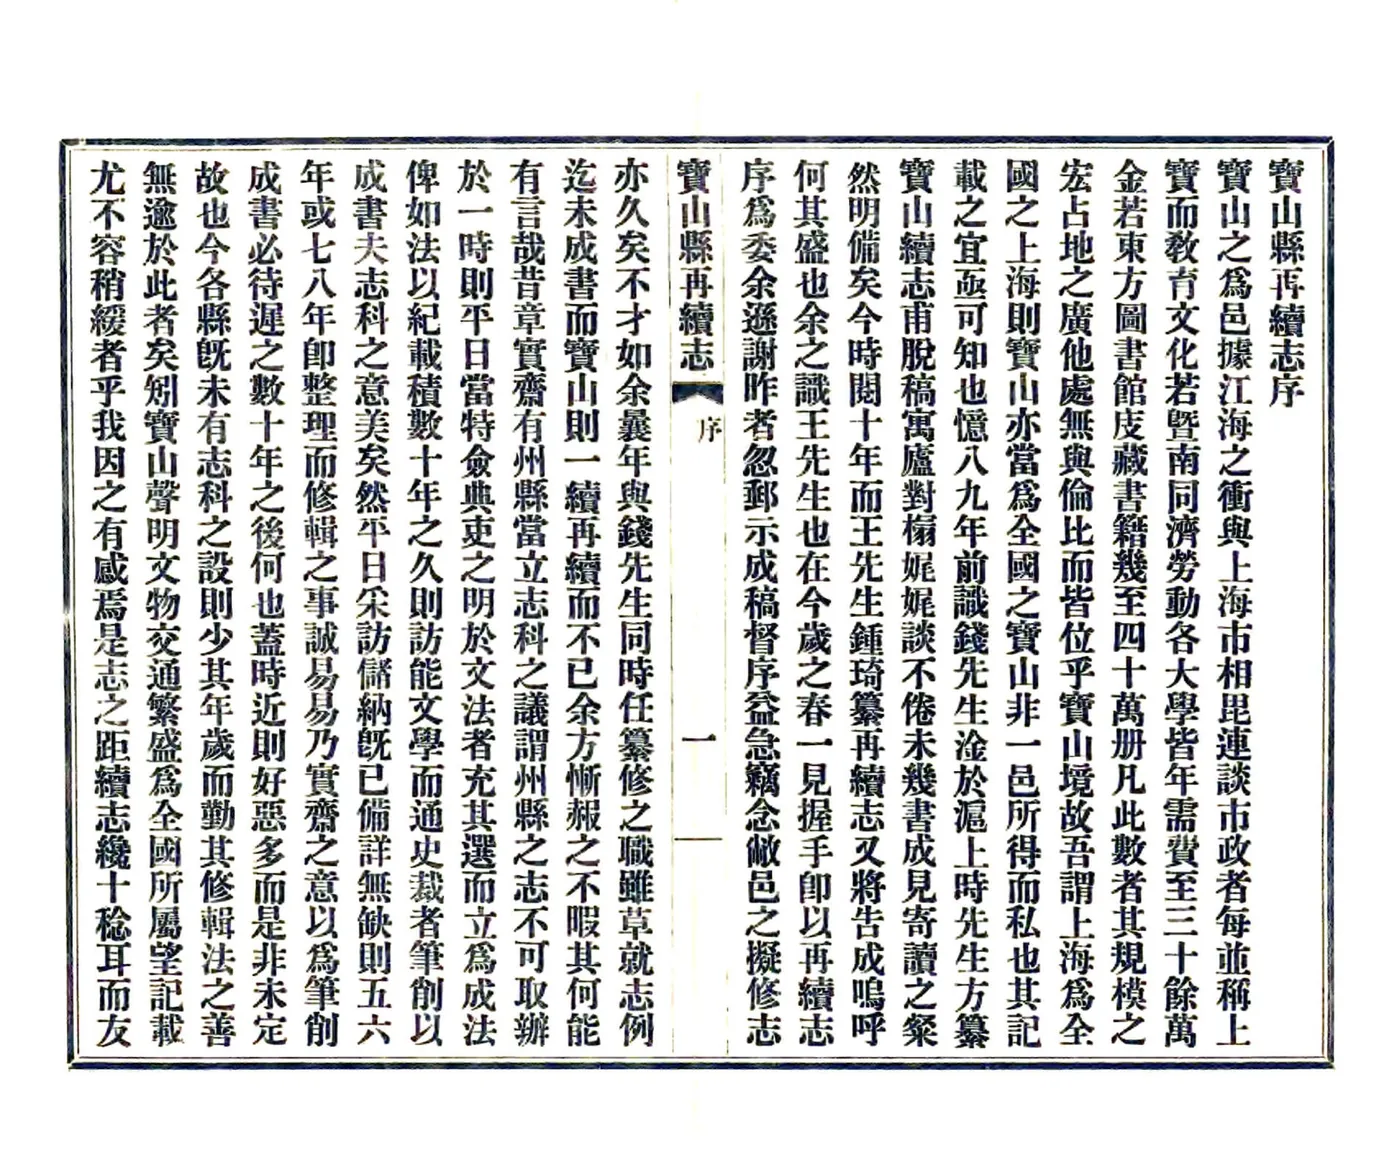 寶山縣再續志序
寶山之爲邑據江海之衝與上海市相毘連談市政者每並稱上
寶而敎育文化若曁南同濟勞動各大學皆年需費至三十餘萬
金若東方圖書館庋藏書籍幾至四十萬册凡此數者其規模之
宏占地之廣他處無與倫比而皆位乎寶山境故吾謂上海爲全
國之上海則寶山亦當爲全國之寶山非一邑所得而私也其記
載之宜亟可知也憶八九年前識錢先生淦於滬上時先生方纂
寶山續志甫脫稿寓廬對榻娓娓談不倦未幾書成見寄讀之粲
然明備矣今時閱十年而王先生鍾琦纂再續志又將告成嗚呼
何其盛也余之識王先生也在今歲之春一見握手卽以再續志
序爲委余遜謝昨者忽郵示成稿督序益急竊念敝邑之擬修志
寶山縣再續志
序
一
亦久矣不才如余曩年與錢先生同時任纂修之職雖草就志例
迄未成書而寶山則一續再續而不已余方慚赧之不暇其何能
有言哉昔章實齋有州縣當立志科之議謂州縣之志不可取辦
於一時則平日當特僉典吏之明於文法者充其選而立爲成法
俾如法以紀載積數十年之久則訪能文學而通史裁者筆削以
成書夫志科之意美矣然平日采訪儲納旣已備詳無缺則五六
年或七八年卽整理而修輯之事誠易易乃實齋之意以爲筆削
成書必待遲之數十年之後何也蓋時近則好惡多而是非未定
故也今各縣旣未有志科之設則少其年歲而勤其修輯法之善
無逾於此者矣矧寶山聲明文物交通繁盛爲全國所屬望記載
尤不容稍緩者乎我因之有感焉是志之距續志纔十稔耳而友